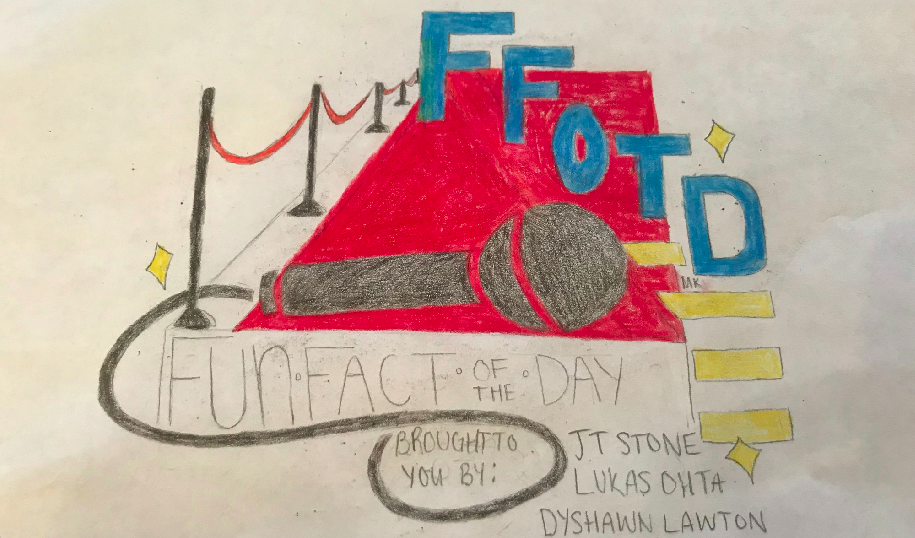 FFOTD
MK
FUN·FACT·OF THE·DAY
BROUGHT TO
YOU BY:
JT STONE
LUKAS OHTA
DYSHAWN LAWTON